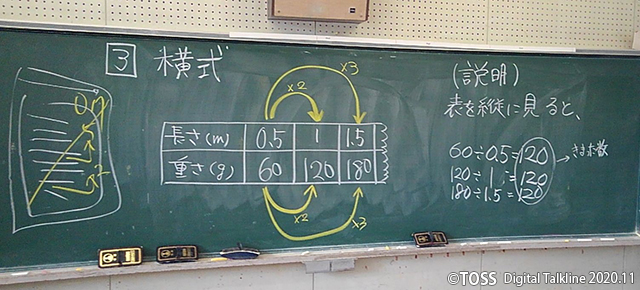 3 横式
×3
×2
長さ(m) 0.5 1 1.5
重さ(g) 60 120 180
×2
×3
(説明)
表を縦に見ると、
60÷0.5=120
120÷1=120
180÷1.5=120
→きまった数
©TOSS Digital Talkline 2020.11